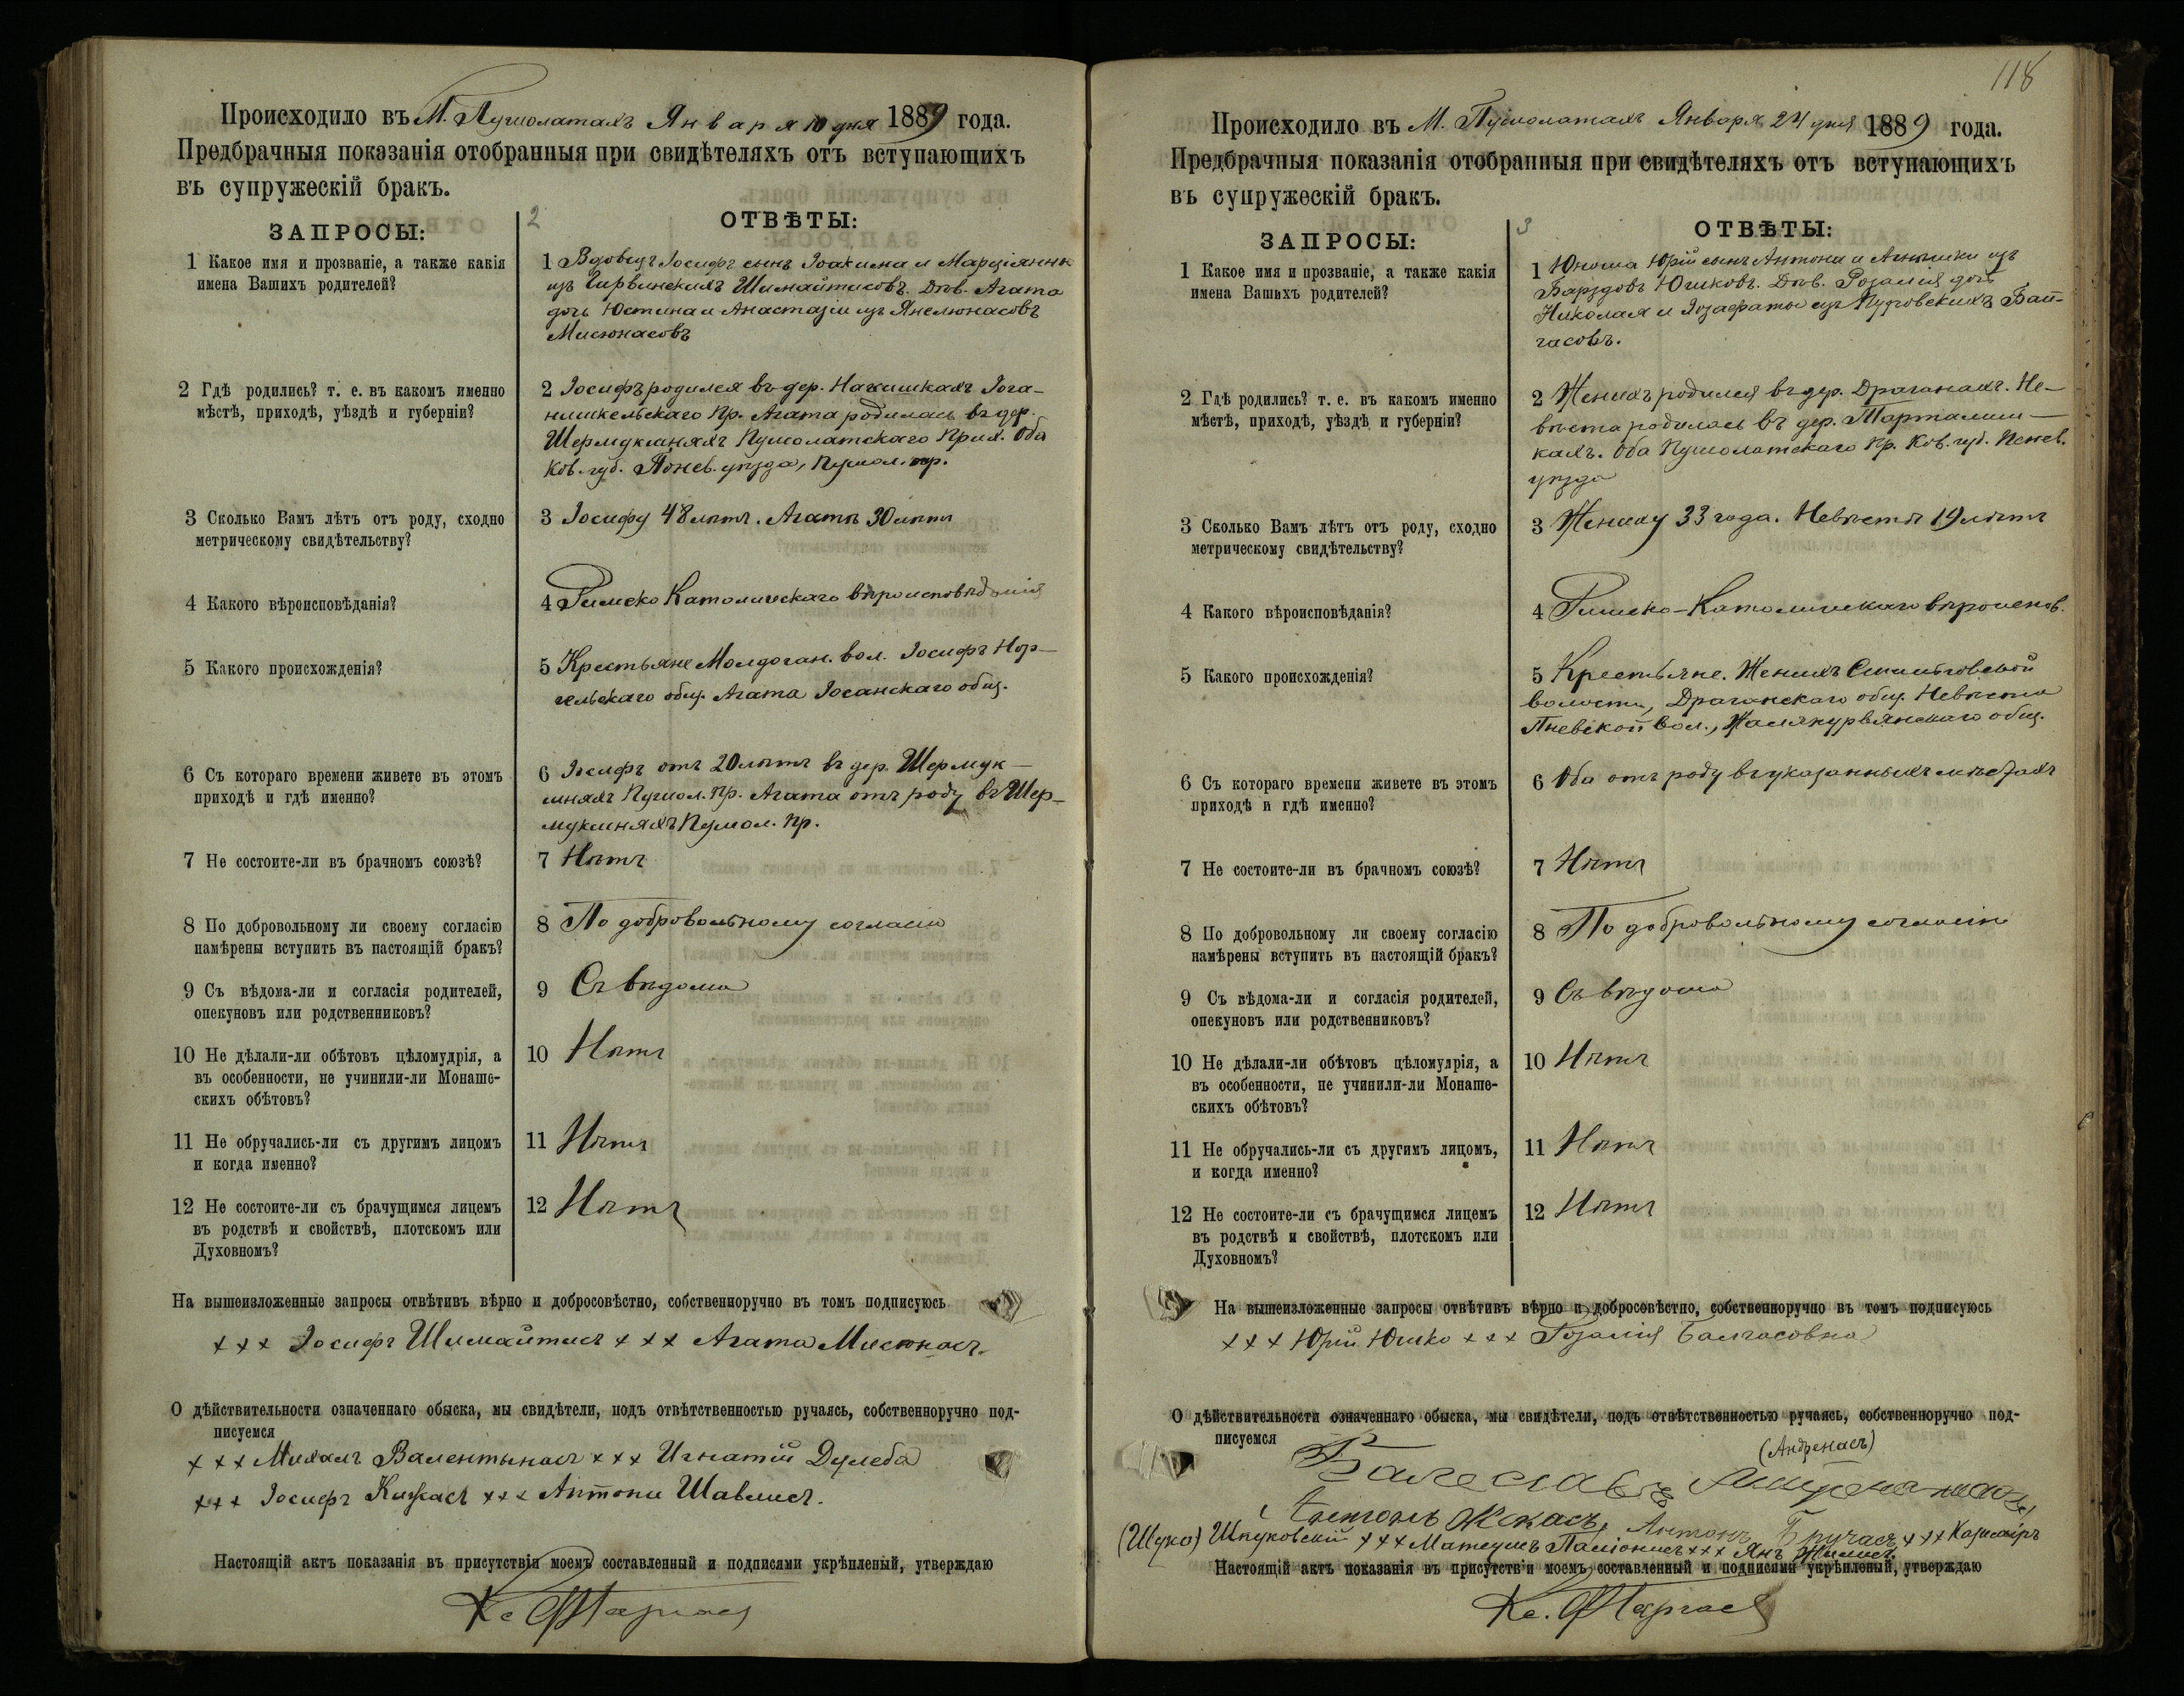 Происходило въ М. Пушолатахъ Января 10 дня 1889 года.
Предбрачныя показанія отобранныя при свидѣтеляхъ отъ вступающихъ
въ супружескій бракъ.
2
ЗАПРОСЫ:
ОТВѢТЫ:
1 Какое имя и прозваніе, а также какія
имена Вашихъ родителей?
1 Вдовецъ Іосифъ сынъ Іоакима и Марціянны
изъ Шимайтисовъ. Дѣв. Агата
дочь Юстина и Анастазіи изъ Янелюнасовъ
Мисюнасовъ
2 Гдѣ родились? т. е. въ какомъ именно
мѣстѣ, приходѣ, уѣздѣ и губерніи?
2 Іосифъ родился въ дер. Накишкахъ Іога-
нишкельскаго пр. Агата родилась въ дер.
Шермукшняхъ Пушолатскаго прих. Оба
Ков. губ. Понев. уѣзда, Пушол. пр.
3 Сколько Вамъ лѣтъ отъ роду, сходно
метрическому свидѣтельству?
3 Іосифу 48 лѣтъ. Агатѣ 30 лѣтъ
4 Какого вѣроисповѣданія?
4 Римско Католическаго вѣроисповѣданія
5 Какого происхожденія?
5 Крестьяне вол. Іосифъ
общ. Агата Іосанскаго общ.
6 Съ котораго времени живете въ этомъ
приходѣ и гдѣ именно?
6 Іосифъ отъ 20 лѣтъ въ дер. Шермук-
шняхъ Пушол. пр. Агата отъ роду въ Шер-
мукшняхъ Пушол. пр.
7 Не состоите-ли въ брачномъ союзѣ?
7 Нѣтъ
8 По добровольному ли своему согласію
намѣрены вступить въ настоящій бракъ?
8 По добровольному согласію
9 Съ вѣдома-ли и согласія родителей,
опекуновъ или родственниковъ?
9 Съ вѣдома
10 Не дѣлали-ли обѣтовъ цѣломудрія, а
въ особенности, не учинили-ли Монаше-
скихъ обѣтовъ?
10 Нѣтъ
11 Не обручались-ли съ другимъ лицомъ
и когда именно?
11 Нѣтъ
12 Не состоите-ли съ брачущимся лицемъ
въ родствѣ и свойствѣ, плотскомъ или
Духовномъ?
12 Нѣтъ
На вышеизложенные запросы отвѣтивъ вѣрно и добросовѣстно, собственноручно въ томъ подписуюсь
+++ Іосифъ Шимайтисъ +++ Агата Мисюнасъ.
О дѣйствительности означеннаго обыска, мы свидѣтели, подъ отвѣтственностью ручаясь, собственноручно под-
писуемся
+++ Михалъ Валентынасъ +++ Игнатій Дулеба
+++ Іосифъ Кижасъ +++ Антони Шавлисъ.
Настоящій актъ показанія въ присутствіи моемъ составленный и подписями укрѣпленый, утверждаю
Кс.
118
Происходило въ М. Пушолатахъ Января 24 дня 1889 года.
Предбрачныя показанія отобранныя при свидѣтеляхъ отъ вступающихъ
въ супружескій бракъ.
3
ЗАПРОСЫ:
ОТВѢТЫ:
1 Какое имя и прозваніе, а также какія
имена Вашихъ родителей?
1 Юноша Юрій сынъ Антони и изъ
Барздовъ Юшковъ. Дѣв. Розалія дочь
Николая и Іозафаты изъ
2 Гдѣ родились? т. е. въ какомъ именно
мѣстѣ, приходѣ, уѣздѣ и губерніи?
2 Женихъ родился въ дер. Драганахъ. Не-
вѣста родилась въ дер. Марталиш-
кахъ. Оба Пушолатскаго пр. Ков. губ. Понев.
уѣзда
3 Сколько Вамъ лѣтъ отъ роду, сходно
метрическому свидѣтельству?
3 Жениху 33 года. Невѣстѣ 19 лѣтъ
4 Какого вѣроисповѣданія?
4 Римско-Католическаго вѣроиспов.
5 Какого происхожденія?
5 Крестьяне. Женихъ Смильговской
волости, Драганскаго общ. Невѣста
вол., общ.
6 Съ котораго времени живете въ этомъ
приходѣ и гдѣ именно?
6 Оба отъ роду въ указанныхъ мѣстахъ
7 Не состоите-ли въ брачномъ союзѣ?
7 Нѣтъ
8 По добровольному ли своему согласію
намѣрены вступить въ настоящій бракъ?
8 По добровольному согласію
9 Съ вѣдома-ли и согласія родителей,
опекуновъ или родственниковъ?
9 Съ вѣдома
10 Не дѣлали-ли обѣтовъ цѣломудрія, а
въ особенности, не учинили-ли Монаше-
скихъ обѣтовъ?
10 Нѣтъ
11 Не обручались-ли съ другимъ лицомъ,
и когда именно?
11 Нѣтъ
12 Не состоите-ли съ брачущимся лицемъ
въ родствѣ и свойствѣ, плотскомъ или
Духовномъ?
12 Нѣтъ
На вышеизложенные запросы отвѣтивъ вѣрно и добросовѣстно, собственноручно въ томъ подписуюсь
+++ Юрій Юшко +++ Розалія Балчасовна
О дѣйствительности означеннаго обыска, мы свидѣтели, подъ отвѣтственностью ручаясь, собственноручно под-
писуемся
Балеславъ
Антонъ Антонъ +++ Казиміръ
Шпуковскій +++ Матеушъ +++ Янъ
Настоящій актъ показанія въ присутствіи моемъ составленный и подписями укрѣпленый, утверждаю
Кс.